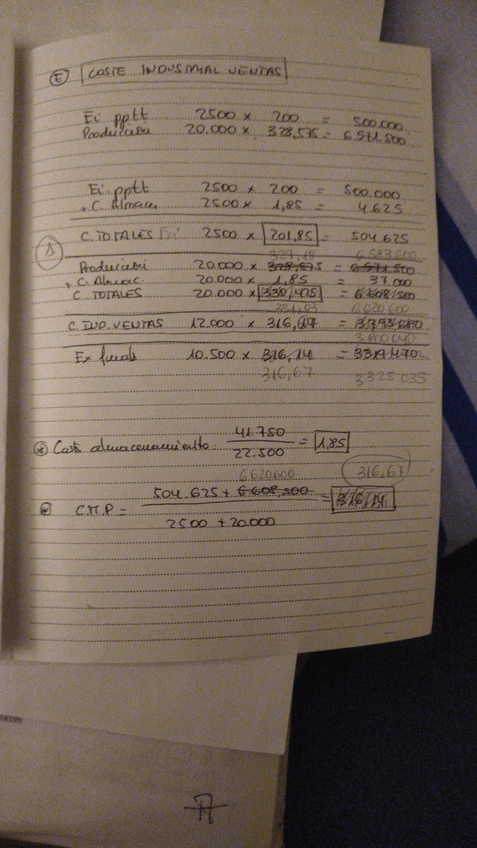 E COSTE INDUSTRIAL VENTAS
Ei pptt 2500 x 200 = 500.000
Producción 20.000 x 328,575 = 6.571.500
Ei. pptt 2500 x 200 = 500.000
+ C. Almac 2500 x 1,85 = 4.625
C. TOTALES Ei 2500 x 201,85 = 504.625
329,18 6.583.600
Producción 20.000 x 328,575 = 6.571.500
+ C. Almac. 20.000 x 1,85 = 37.000
C. TOTALES 20.000 x 330,425 = 6.608.500
6.620.600
C. IND. VENTAS 12.000 x 316,67 =
3.800.040
Ex finals 10.500 x 316,14 =
316,67 3325035
Coste almacenamiento: 41.750 / 22.500 = 1,85
6620600 316,67
C.M.P = 504.625 + 6.608.500 / 2500 + 20.000 = 316,14